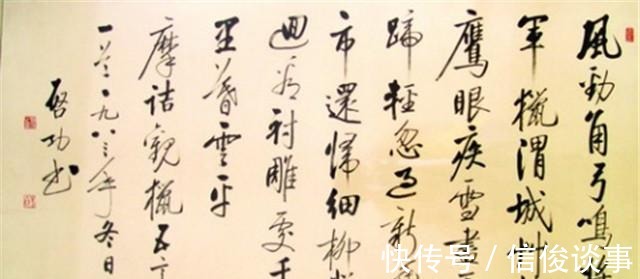 風勁角弓鳴
軍獵渭城
鷹眼疾雪
蹄輕忽過新
市還歸細柳
迴看射雕處千
里暮雲平
摩詰觀獵五言
一首一九八三年冬日
启功书
快传号 / 信俊谈事